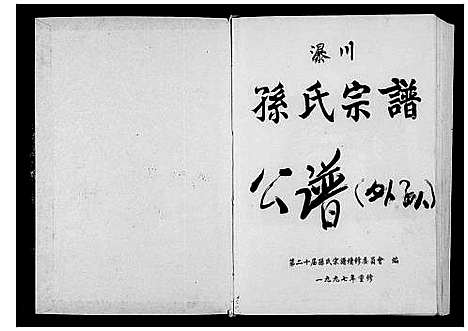 瀑川
孫氏宗譜
公譜(外紀)
第二十屆孫氏宗譜續修委員會 編
一九九七年重修